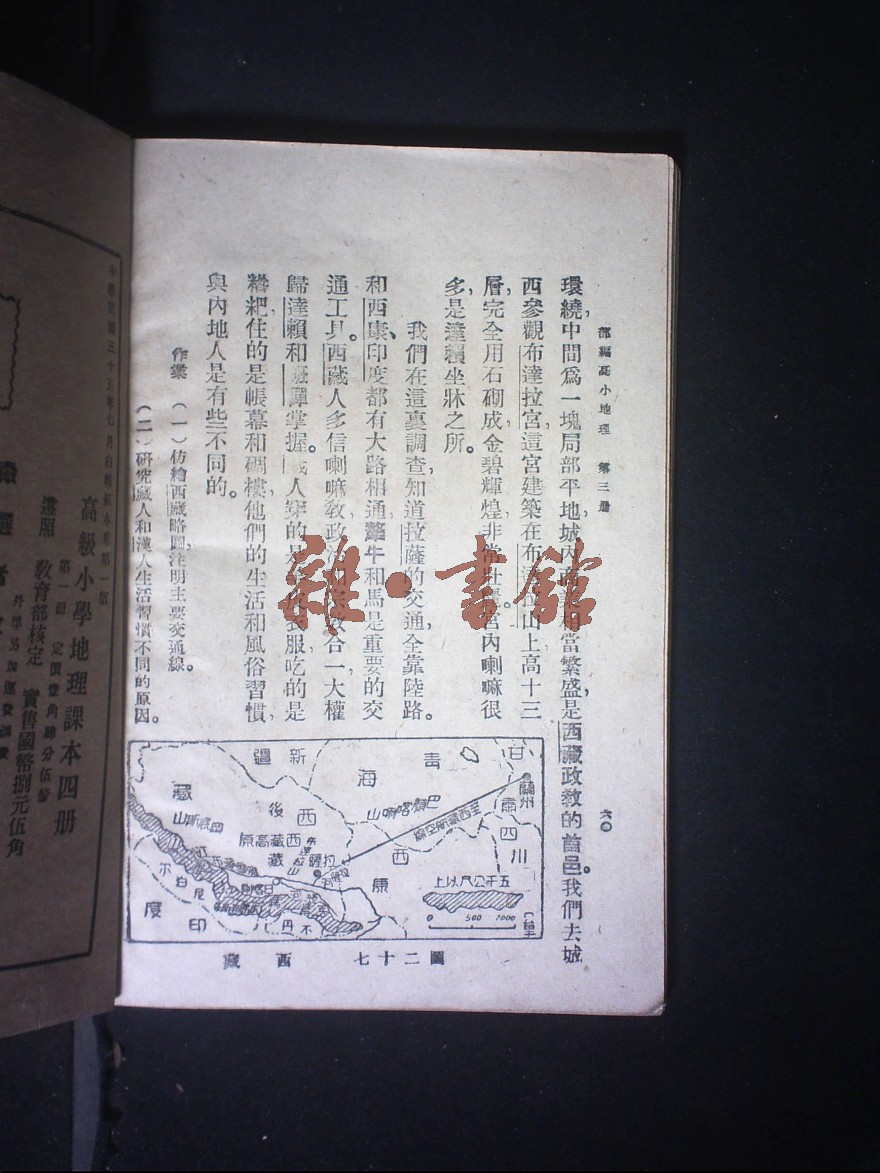 部編高小地理 第三冊 六〇
環繞,中間爲一塊局部平地,城內商 相當繁盛,是西藏政教的首邑。我們去城
西參觀布達拉宮,這宮建築在布達拉山上,高十三
層,完全用石砌成,金碧輝煌,非常壯麗。宮內喇嘛很
多,是達賴坐牀之所。
我們在這裏調查,知道拉薩的交通,全靠陸路。
和西康、印度都有大路相通,犛牛和馬是重要的交
通工具。西藏人多信喇嘛教,政治和宗教合一,大權
歸達賴和班禪掌握。藏人穿的是 衣服,吃的是
糌粑,住的是帳幕和碉樓,他們的生活和風俗習慣,
與內地人是有些不同的。
作業 (一)仿繪西藏略圖,注明主要交通線。
(二)研究藏人和漢人生活習慣不同的原因。
新疆
青海
甘肅
蘭州
四川
西康
巴顏喀喇山
至西藏航空線
後藏
西藏
西藏高原
岡底斯山
拉薩
印度
不丹
五千公尺以上
0 500 1000
圖二十七 西藏
雜·書館
中華民國三十五年七月白報紙本 第一版
高級小學地理課本四冊
第一冊 定價壹角肆分伍釐
遵照教育部核定 實售國幣捌元伍角
外埠另加運費滙費